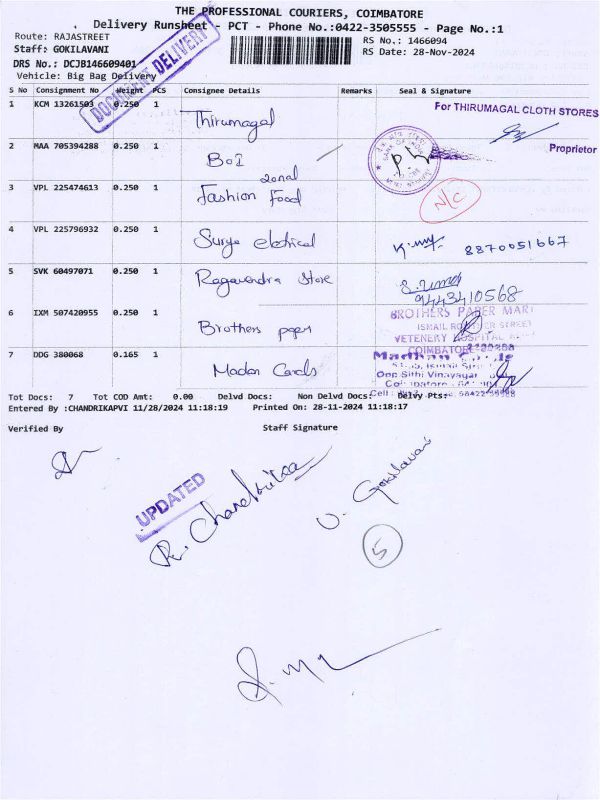 THE PROFESSIONAL COURIERS, COIMBATORE
Delivery Runsheet - PCT - Phone No.:0422-3505555 - Page No.:1
Route: RAJASTREET
RS No.: 1466094
Staff: GOKILAVANI
RS Date: 28-Nov-2024
DRS No.: DCJB146609401
Vehicle: Big Bag Delivery
DOCUMENT DELIVERY
S No Consignment No Weight PCS Consignee Details Remarks Seal & Signature
1 KCM 13261503 0.250 1 Thirumagal
For THIRUMAGAL CLOTH STORES
Proprietor
2 MAA 705394288 0.250 1 BOI
zonal
3 VPL 225474613 0.250 1 Fashion Food N/C
4 VPL 225796932 0.250 1 Surya electrical 8870051667
5 SVK 60497071 0.250 1 Ragavendra Store
9443410568
6 IXM 507420955 0.250 1 Brothers paper
BROTHERS PAPER MART
VETENERY HOSPITAL
COIMBATORE
7 DDG 380068 0.165 1 Madan Cards
Opp Sithi Vinayagar
Tot Docs: 7 Tot COD Amt: 0.00 Delvd Docs: Non Delvd Docs: Delvy Pts:
Entered By :CHANDRIKAPVI 11/28/2024 11:18:19 Printed On: 28-11-2024 11:18:17
Verified By Staff Signature
UPDATED
Chandrika
Gokilavani
5